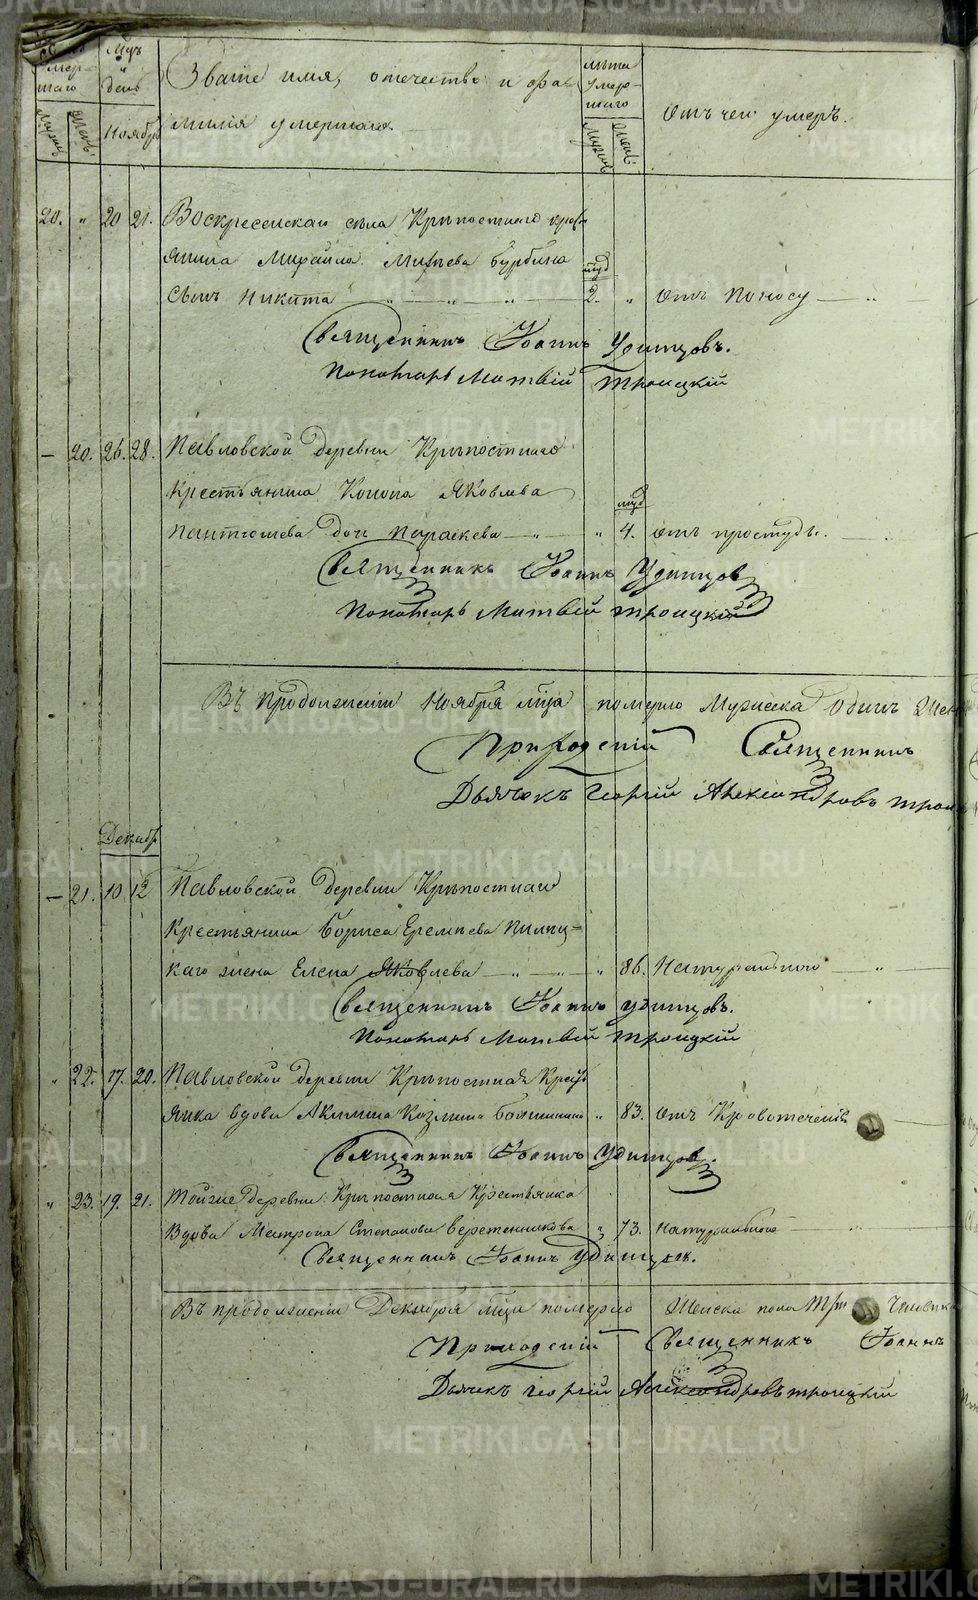 Мцъ и день
Званіе имя, отечество и фа-
милія умершаго.
лѣта умер-
шаго
Отъ чего умеръ.
Ноябрь
20. " 20 21. Воскресенскаго села Крѣпостнаго крес-
янина Михайла Бурбина
сынъ Никита 2. " отъ поносу
Священникъ Іоаннъ Удинцовъ.
Пономарь Матвѣй Троицкій
— 20. 26. 28. Павловской деревни Крѣпостнаго
Крестьянина Конона Яковлева
Пантюшева дочь Параскева " 4. отъ простуды.
Священникъ Іоаннъ Удинцов
Пономарь Матвѣй Троицкій
Въ продолженіи Ноября мца померло Мужеска Одинъ Жен
Приходскій Священникъ
Дьячекъ Георгій Александровъ трои
Декабр
— 21. 10 12 Павловской деревни Крѣпостнаго
Крестьянина Бориса Еремѣева
каго жена Елена Яковлева " 86. Натуральною
Священникъ Іоаннъ Удинцовъ.
Пономарь Матвѣй Троицкій
" 22. 17. 20. Павловской деревни Крѣпостная Крес
янка вдова Акилина Козмина " 83. отъ Кровотеченія
Священникъ Іоаннъ Удинцов.
" 23. 19. 21. Тойже деревни Крѣпостная Крестьянка
Вдова Матрона Степанова Веретенникова " 73. натуральною
Священникъ Іоаннъ Удинцов.
Въ продолженіи Декабря мца померло Женска пола три Человека
Приходскій Священникъ Іоаннъ
Дьячекъ Георгій Александровъ троицкій
METRIKI.GASO-URAL.RU